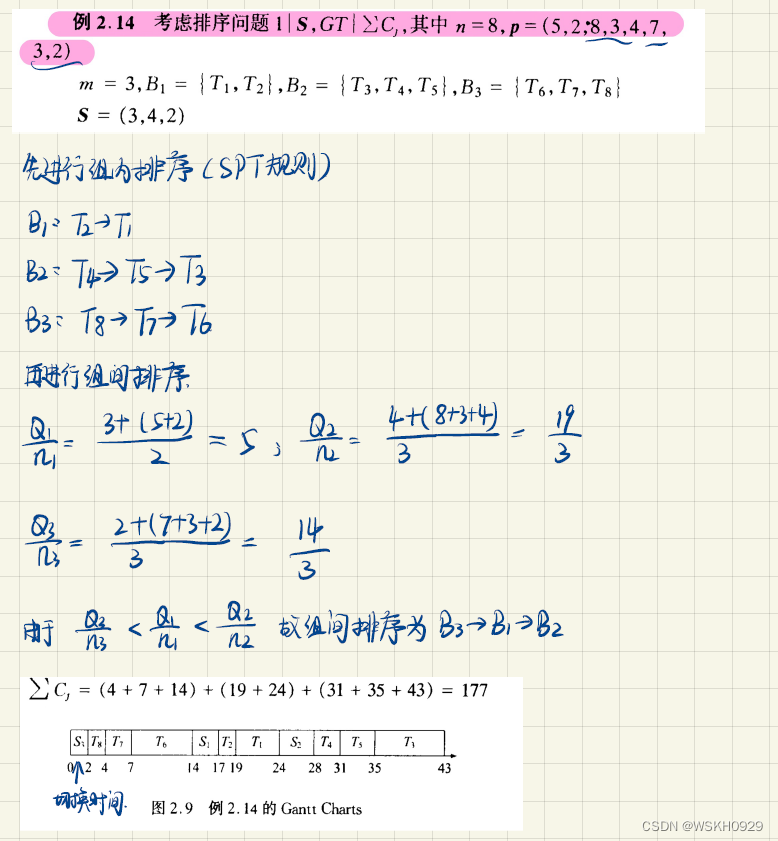 例 2.14 考虑排序问题 1|S,GT|∑Cⱼ,其中 n=8,p=(5,2,8,3,4,7,
3,2)
m = 3,B₁ = {T₁,T₂},B₂ = {T₃,T₄,T₅},B₃ = {T₆,T₇,T₈}
S = (3,4,2)
先进行组内排序(SPT规则)
B₁: T₂→T₁
B₂: T₄→T₅→T₃
B₃: T₈→T₇→T₆
再进行组间排序
Q₁/n₁ = 3+(5+2)/2 = 5 ; Q₂/n₂ = 4+(8+3+4)/3 = 19/3
Q₃/n₃ = 2+(7+3+2)/3 = 14/3
由于 Q₃/n₃ < Q₁/n₁ < Q₂/n₂ 故组间排序为 B₃→B₁→B₂
∑Cⱼ = (4 + 7 + 14) + (19 + 24) + (31 + 35 + 43) = 177
S₃ T₈ T₇ T₆ S₁ T₂ T₁ S₂ T₄ T₅ T₃
0 2 4 7 14 17 19 24 28 31 35 43
切换时间.
图 2.9 例 2.14 的 Gantt Charts
CSDN @WSKH0929